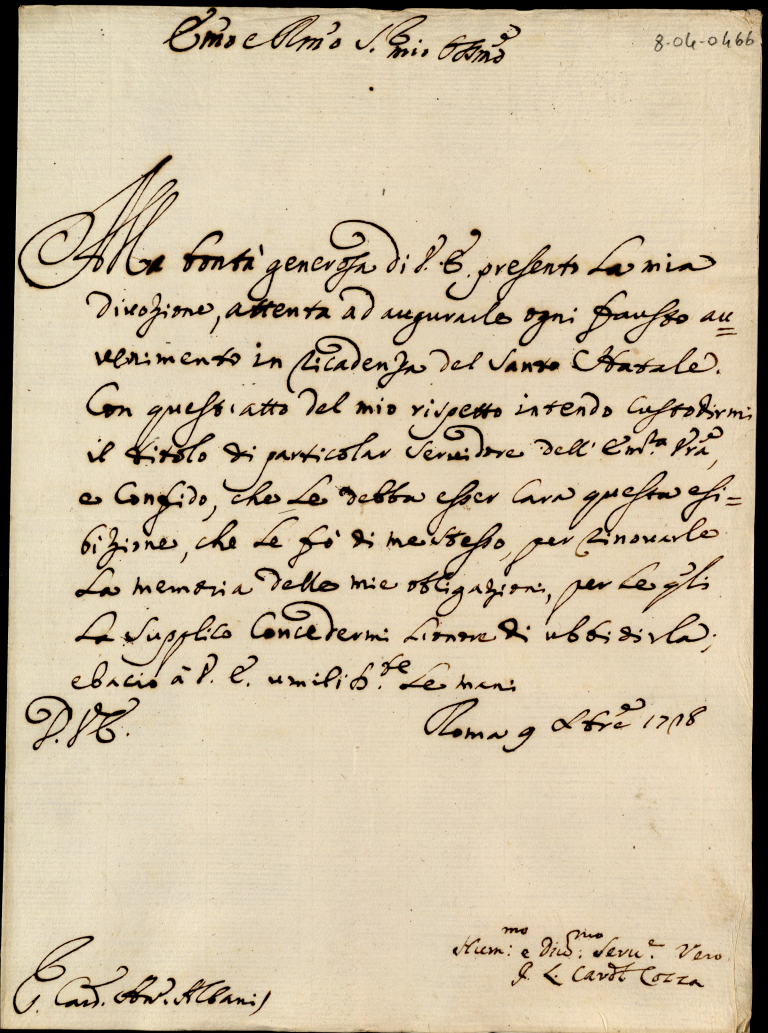 Emo e Rmo S.r mio Ossmo
8-04-0466
Alla bontà generosa di V. E. presento la mia
divozione, attenta ad augurarle ogni fausto au=
uenimento in ricadenza del Santo Natale.
Con quest'atto del mio rispetto intendo custodirmi
il titolo di particolar Seruidore dell' Em.za Vra,
e confido, che Le debba esser cara questa esi=
bizione, che Le fò di me stesso, per rinouarle
la memoria delle mie obligazioni, per le qli
La supplico concedermi l'onore di ubbidirla;
e bacio à V. E. umiliss.te le mani
D. V. E.
Roma 9 Xbre 1728
Hum:mo e Diu:mo Seru.e Vero
F. L. Card. Cozza
S. Card. Ann. Albani